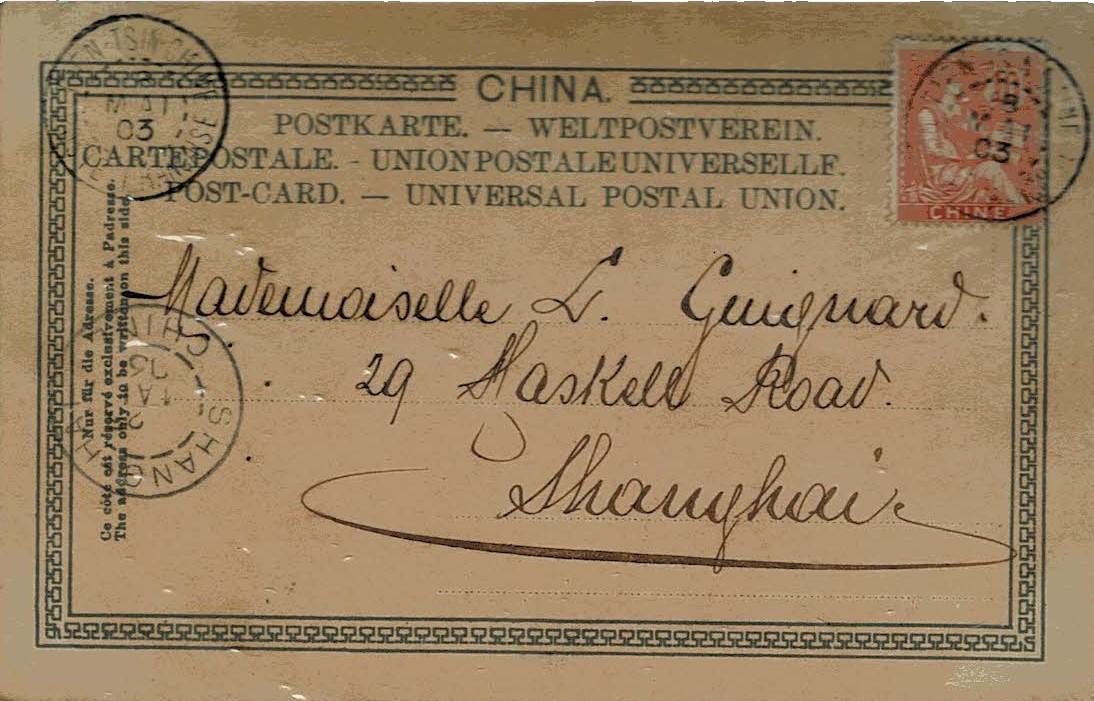 CHINA.
POSTKARTE. — WELTPOSTVEREIN.
CARTE POSTALE. - UNION POSTALE UNIVERSELLE.
POST-CARD. — UNIVERSAL POSTAL UNION.
TSIN CHINE
MAI
03
8
MAI
03
CHINE
Nur für die Adresse.
Ce côté est réservé exclusivement à l'adresse.
The address only to be written on this side.
Mademoiselle L. Guignard.
29 Haskell Road.
Shanghai
SHANG